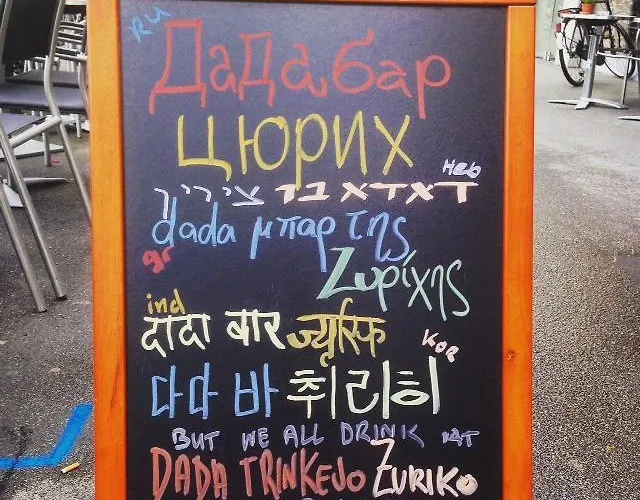 RU
Дадабар
цюрих
Heb
דאדא בר ציריך
dada μπαρ της
gr
Ζυρίχης
ind
दादा बार
KOR
다다 바 취리히
BUT WE ALL DRINK AT
DADA TRINKEJO ZURIKO